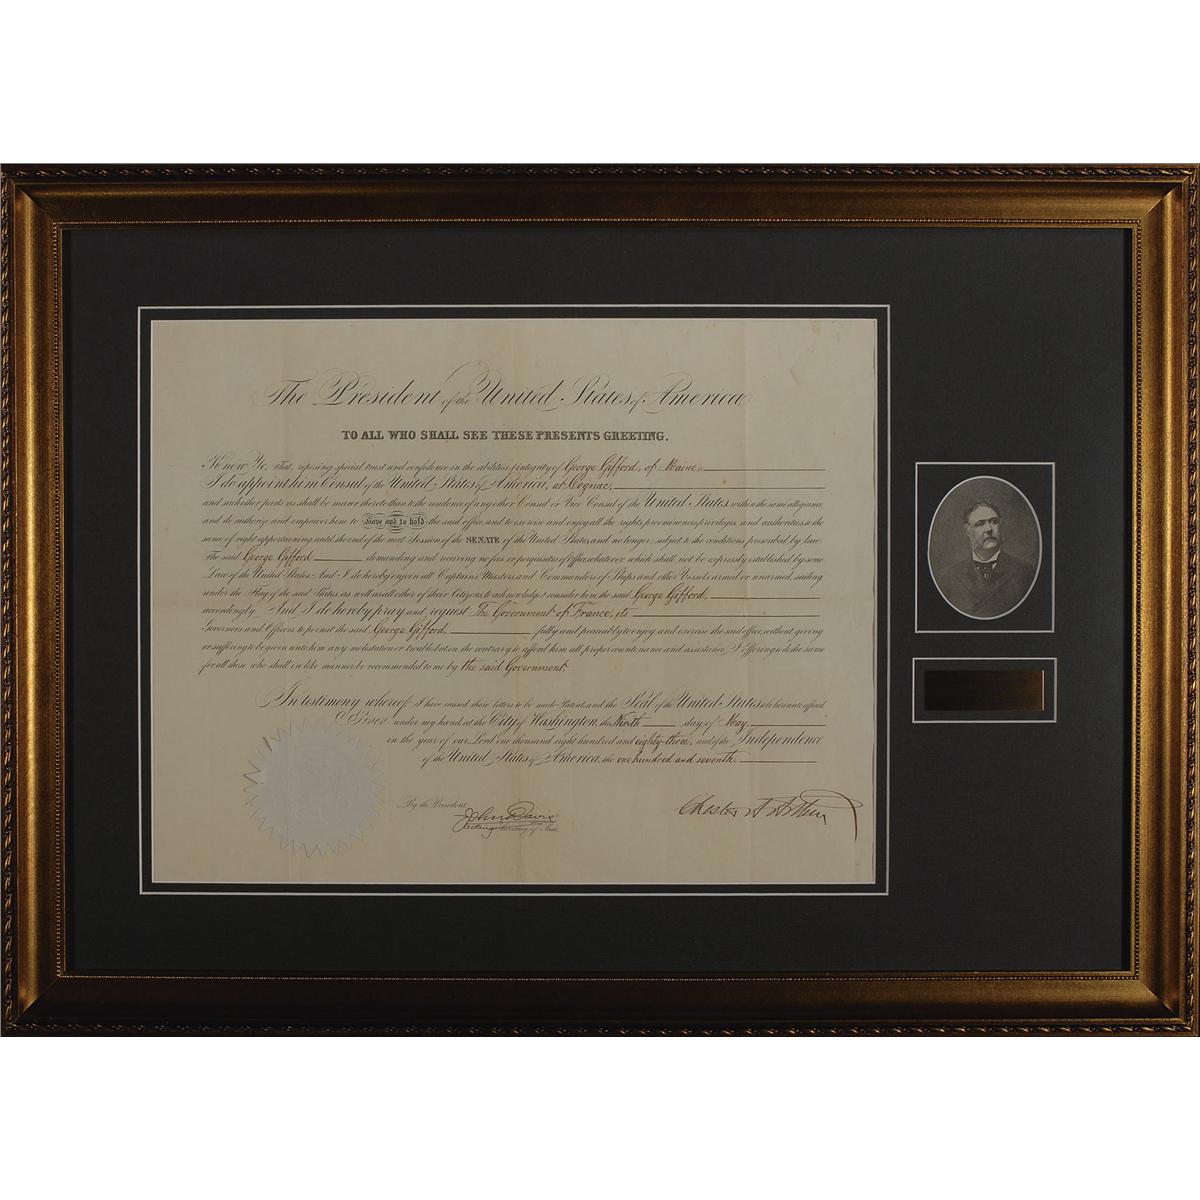 The President of the United States of America
TO ALL WHO SHALL SEE THESE PRESENTS GREETING.
Know Ye, That, reposing special trust and confidence in the abilities & integrity of George Gifford, of Maine,
I do appoint him Consul of the United States of America, at Cognac,
and such other parts as shall be nearer thereto than to the residence of any other Consul or Vice Consul of the United States, within the same allegiance,
and do authorize and empower him to Have and to hold the said office, and to exercise and enjoy all the rights, preeminences, privileges, and authorities, to the
same of right appertaining, until the end of the next Session of the SENATE of the United States, and no longer, subject to the conditions prescribed by law.
The said George Gifford demanding and receiving no fees or perquisites of Office whatever which shall not be expressly established by some
Law of the United States. And I do hereby enjoin all Captains, Masters, and Commanders of Ships and other Vessels, armed or unarmed, sailing
under the Flag of the said States, as well as all other of their Citizens, to acknowledge & consider him, the said George Gifford,
accordingly. And I do hereby pray and request The Government of France, its
Governors and Officers to permit the said George Gifford, fully and peaceably to enjoy and exercise the said office, without giving
or suffering to be given unto him any molestation or trouble, but on the contrary to afford him all proper countenance and assistance, I offering to do the same
for all those who shall in like manner be recommended to me by the said Government.
In testimony whereof, I have caused these letters to be made Patent, and the Seal of the United States to be hereunto affixed.
Given under my hand, at the City of Washington, the Ninth day of May,
in the year of our Lord one thousand eight hundred and eighty-three, and of the Independence
of the United States of America, the one hundred and seventh.
By the President,
Chester A Arthur
John Davis
Acting Secretary of State